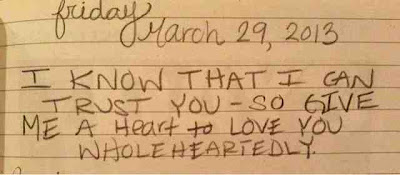 friday
March 29, 2013
I KNOW THAT I CAN
TRUST YOU - SO GIVE
ME A Heart to LOVE YOU
WHOLEHEARTEDLY.